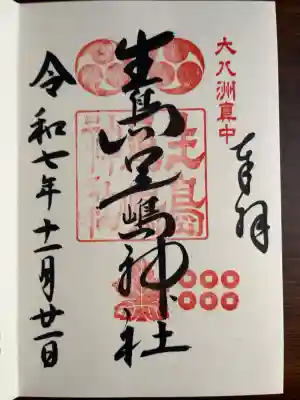 大八洲真中
奉拝
生島足嶋神社
令和七年十一月廿一日